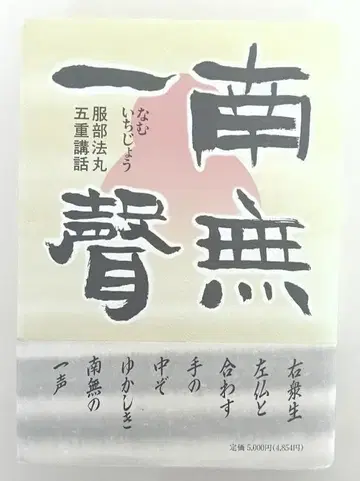 南無
一聲
なむ
いちじょう
服部法丸
五重講話
右衆生
左仏と
合わす
手の
中ぞ
ゆかしき
南無の
一声
定価 5,000円(4,854円)